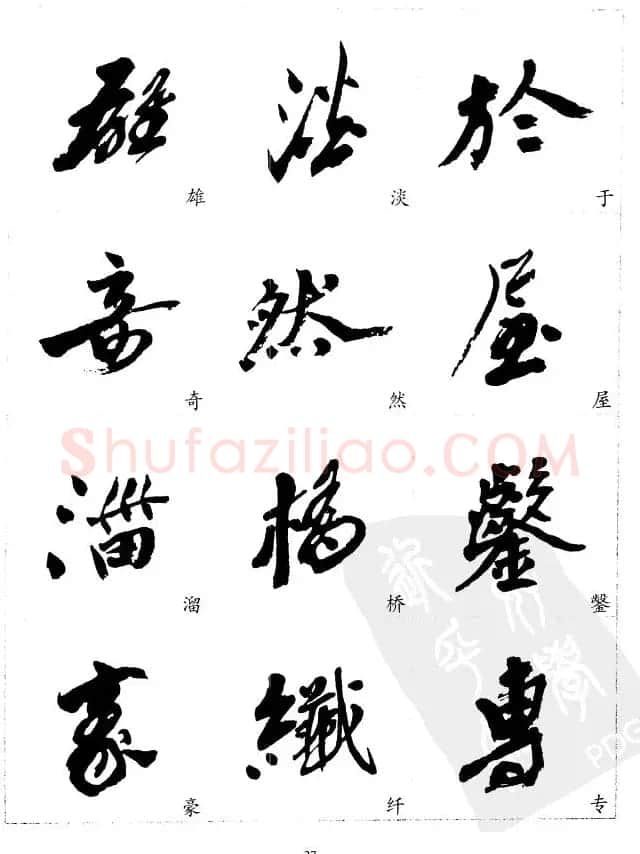 雄 淡 於
雄 淡 于
奇 然 屋
奇 然 屋
溜 橋
溜 桥
豪 纖 專
豪 纤 专
Shufaziliao.COM
PDG